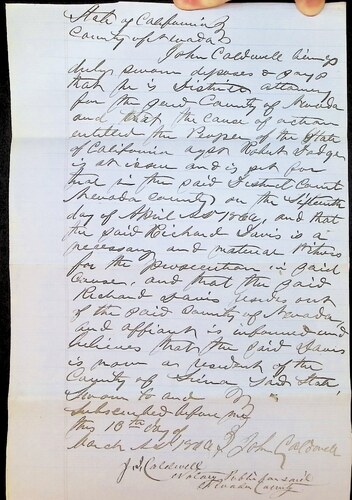 State of California }
County of Nevada }
John Caldwell being
duly sworn deposes & says
that he is District attorney
for the said County of Nevada
and that the cause of action
entitled the People of the State
of California agst Robert Dodge
is at issue and is set for
trial in the said District Court
Nevada County on the fifteenth
day of April AD 1864, and that
the said Richard Davis is a
necessary and material witness
for the prosecution in said
Cause, and that the said
Richard Davis resides out
of the said County of Nevada
and affiant is informed and
believes that the said Davis
is now a resident of the
County of Sierra said State,
Sworn to and
Subscribed before me
this 18th day of
March AD 1864 } John Caldwell
J. Caldwell
Notary Public for said
Nevada County